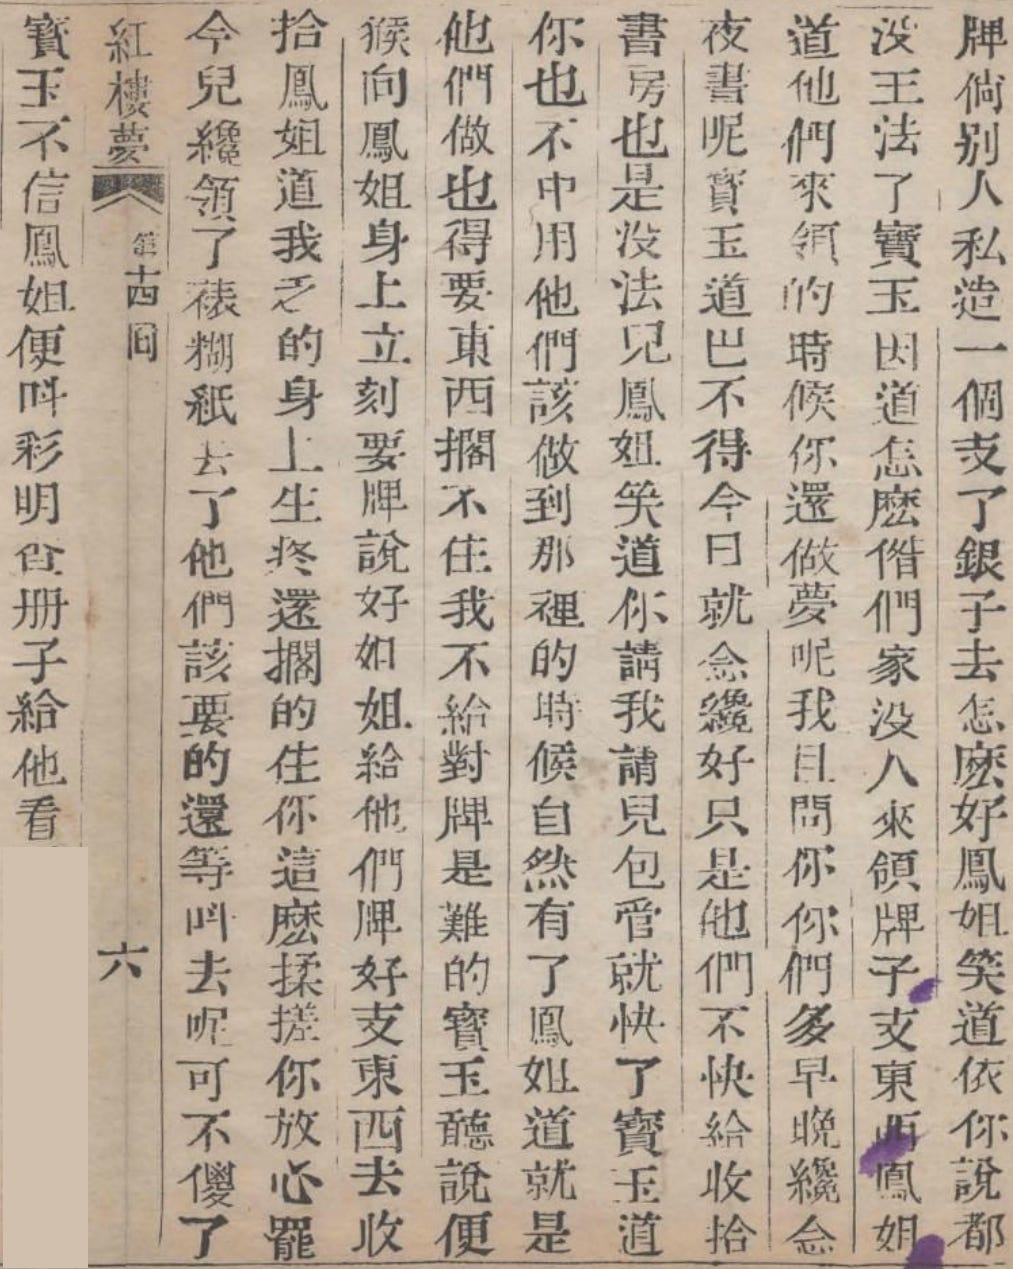 牌倘别人私造一個支了銀子去怎麽好鳳姐笑道依你說都
没王法了寳玉因道怎麽偺們家没人來領牌子支東西鳳姐
道他們來領的時候你還做夢呢我且問你你們多早晚纔念
夜書呢寳玉道巴不得今日就念纔好只是他們不快給收拾
書房也是没法兒鳳姐笑道你請我請兒包管就快了寳玉道
你也不中用他們該做到那裡的時候自然有了鳳姐道就是
他們做也得要東西擱不住我不給對牌是難的寳玉聽說便
猴向鳳姐身上立刻要牌說好姐姐給他們牌好支東西去收
拾鳳姐道我乏的身上生疼還擱的住你這麽揉搓你放心罷
今兒纔領了裱糊紙去了他們該要的還等呌去呢可不傻了
紅樓夢 第十四回 六
寳玉不信鳳姐便呌彩明查册子給他看